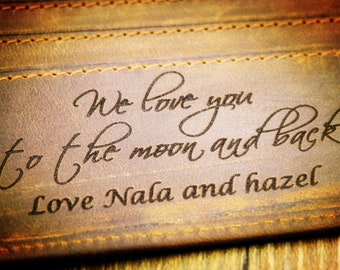 We love you
to the moon and back
Love Nala and hazel